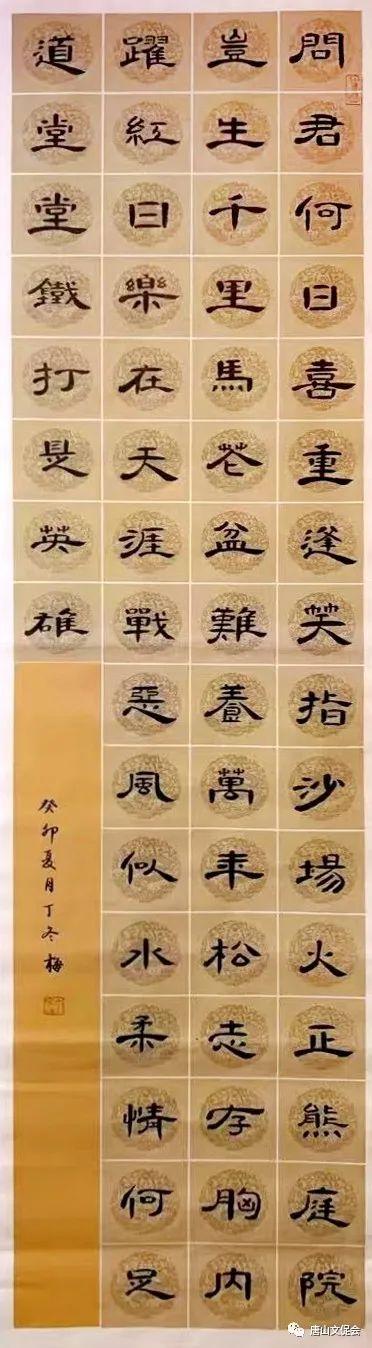 問君何日喜重逢笑指沙場火正熊庭院
豈生千里馬花盆難養萬年松志存胸內
躍紅日樂在天涯戰惡風似水柔情何足
道堂堂鐵打是英雄
癸卯夏月丁冬梅
唐山文促会